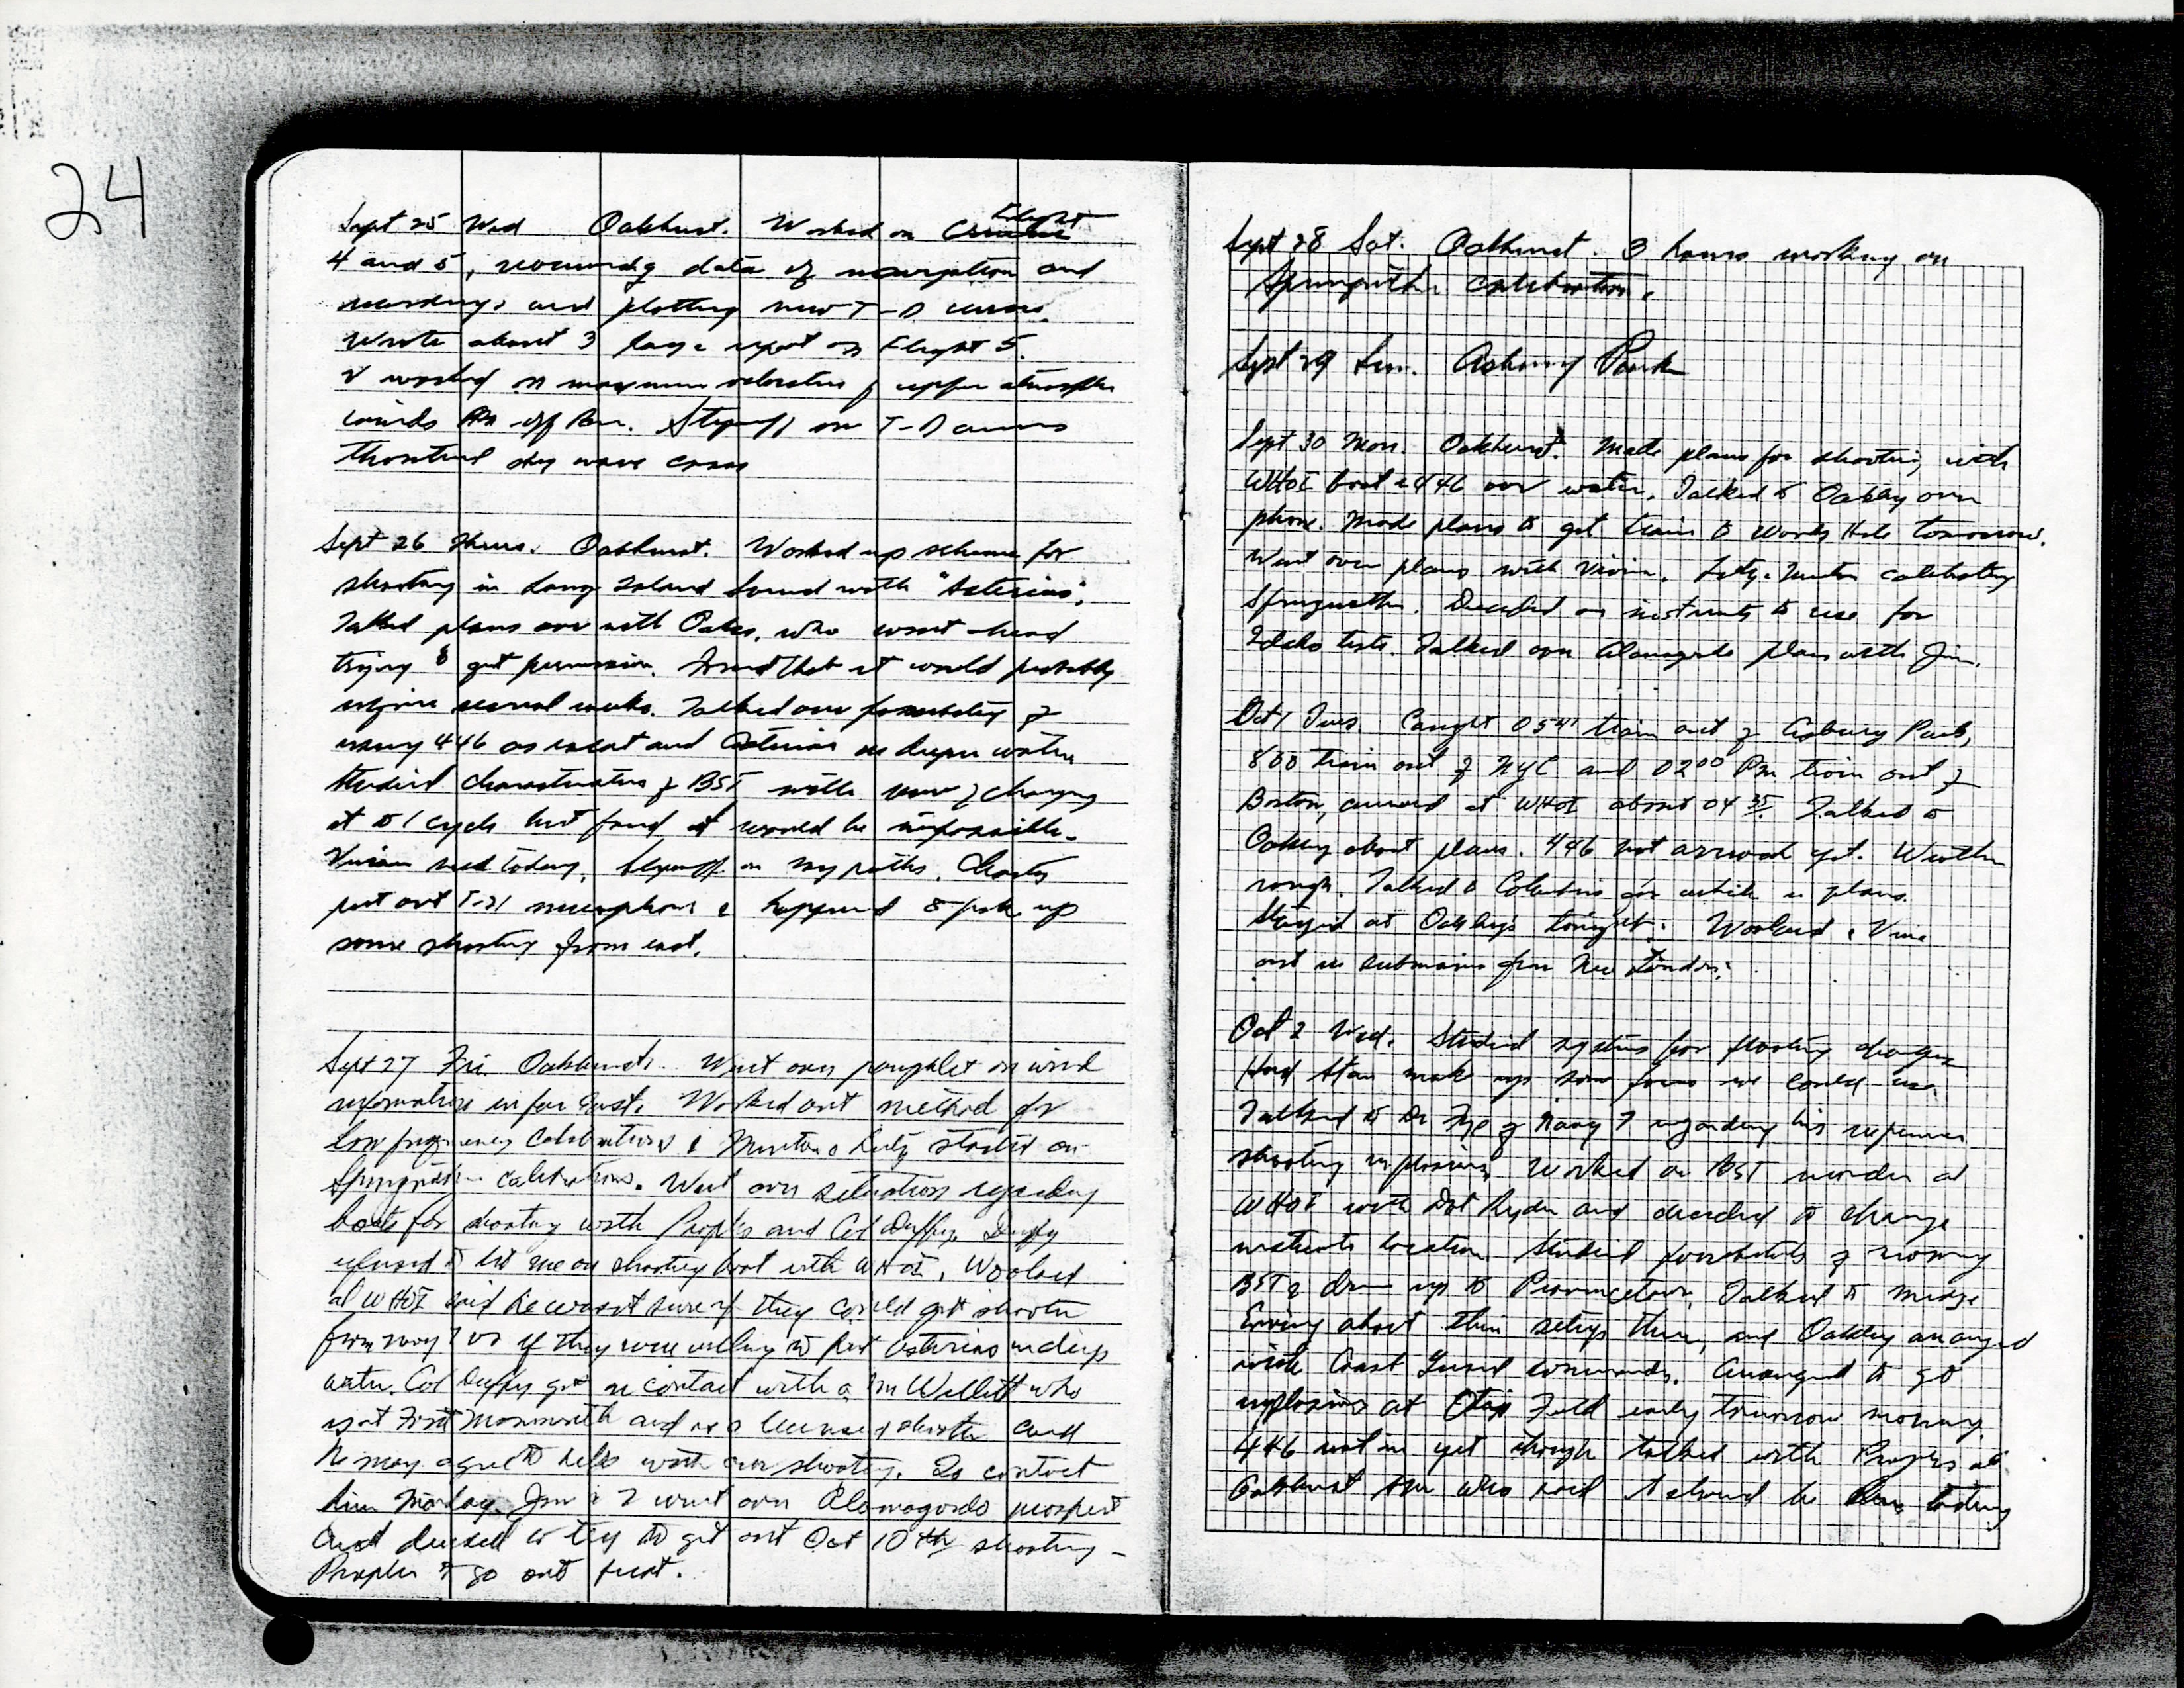 24
Sept 25 Wed Oakhurst. Worked on Flight
4 and 5, data of navigation and
and plotting new T-D curves.
Wrote about 3 page report on Flight 5.
& worked on maximum velocities of upper atmosphere
winds Stegnoff on T-D curves
Theoretical sky wave cases
Sept 26 Thurs. Oakhurst. Worked up scheme for
shooting in Long Island Sound with "Asterias".
Talked plans over with Oakes, who went ahead
trying to get permission. Found that it would probably
require several weeks. Talked over possibility of
using 446 as and Asterias in deeper water
Studied characteristics of BST with view of changing
it to 1 cycle but found it would be impossible.
Vivian sick today. Stegnoff on ray paths. Charles
put out T-21 microphone & happened to pick up
some shooting from east.
Sept 27 Fri. Oakhurst. Went over pamphlet on wind
information in far East. Worked out method for
low frequency calibrations & Minton & started on
calibrations. Went over situation regarding
boats for shooting with Peoples and Col Duffy. Duffy
refused to let me on shooting boat with WHOI. Woolard
at WHOI said he wasn't sure if they could get shooter
from navy or if they were willing to put Asterias in deep
water. Col Duffy got in contact with a Mr Willett who
is at Fort Monmouth and is a licensed shooter and
he may agree to help with our shooting. To contact
him Monday. Jim & I went over Alamogordo prospect
and decided to try to get out Oct 10th shooting –
Peoples to go out first.
Sept 28 Sat. Oakhurst. 3 hours working on
calibration.
Sept 29 Sun. Asbury Park
Sept 30 Mon. Oakhurst. Made plans for shooting with
WHOI boat & 446 over water. Talked to Oakley over
phone. Made plans to get train to Woods Hole tomorrow.
Went over plans with Vivian. calibrating
Decided on instruments to use for
Idaho tests. Talked over Alamogordo plans with Jim.
Oct 1 Tues. Caught 0541 train out of Asbury Park,
800 train out of NYC and 0200 PM train out of
Boston, arrived at WHOI about 04 35. Talked to
Oakley about plans. 446 not arrived yet. Weather
rough. Talked to Columbus for while on plans.
Stayed at Oakley's tonight. Woolard & Vine
out in submarine from New London.
Oct 2 Wed. Studied systems for floating charges
Had Stan make up some forms we could use.
Talked to Dr Fye of Navy 7 regarding his experience
shooting explosives. Worked on BST recorder at
WHOI with Dot Ryder and decided to change
instruments location. Studied possibility of moving
BST & drum up to Provincetown. Talked to Midge
Ewing about their setup there, and Oakley arranged
with Coast Guard commander. Arranged to get
explosives at Otis Field early tomorrow morning.
446 not in yet though talked with Peoples at
Oakhurst who said it should be here today